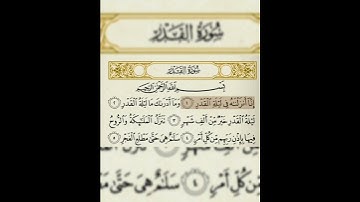 سُورَةُ الْقَدْرِ
سُورَةُ الْقَدْرِ
بِسْمِ اللَّهِ الرَّحْمَٰنِ الرَّحِيمِ
إِنَّا أَنزَلْنَاهُ فِي لَيْلَةِ الْقَدْرِ ١ وَمَا أَدْرَاكَ مَا لَيْلَةُ الْقَدْرِ ٢
لَيْلَةُ الْقَدْرِ خَيْرٌ مِّنْ أَلْفِ شَهْرٍ ٣ تَنَزَّلُ الْمَلَائِكَةُ وَالرُّوحُ
فِيهَا بِإِذْنِ رَبِّهِم مِّن كُلِّ أَمْرٍ ٤ سَلَامٌ هِيَ حَتَّىٰ مَطْلَعِ الْفَجْرِ ٥
مِّن كُلِّ أَمْرٍ ٤ سَلَامٌ هِيَ حَتَّىٰ